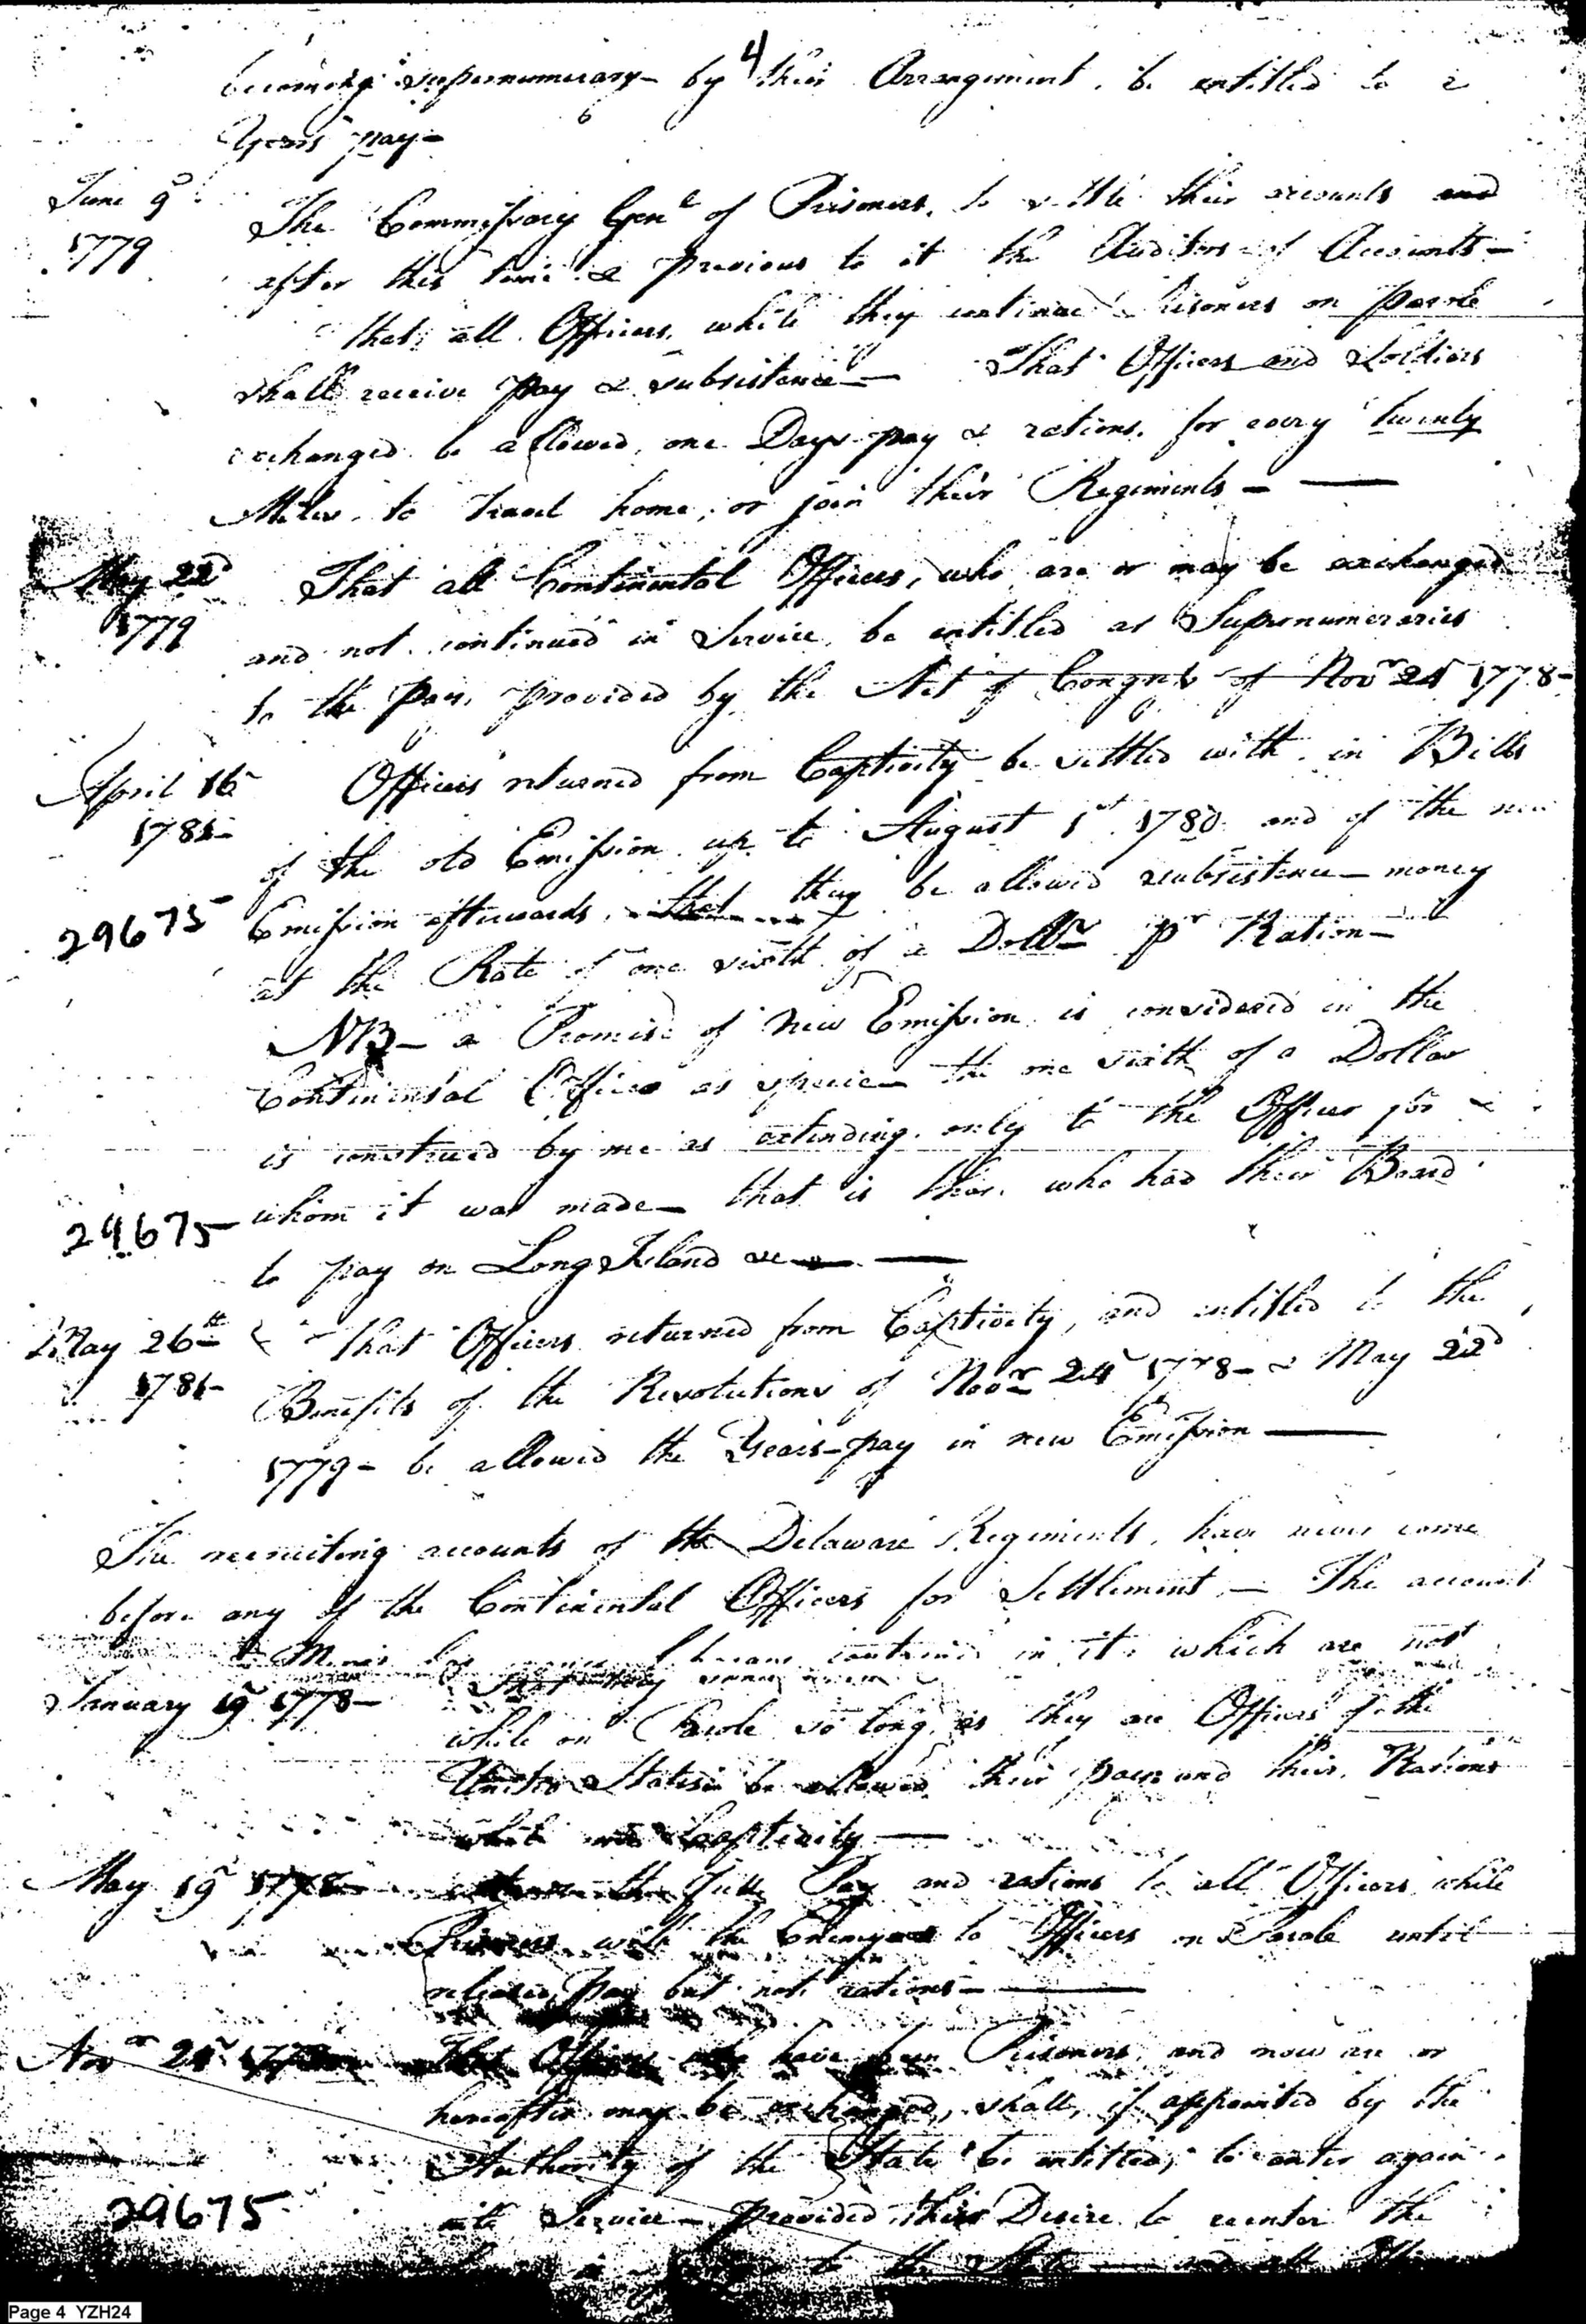 4
becoming supernumerary by their Arrangement, be entitled to a
Years pay-
June 9
1779
The Commissary Genl of Prisoners, to settle their accounts and
after this time & previous to it the Auditors of Accounts-
that all Officers, while they continue Prisoners on parole
shall receive pay & subsistence- That Officers and Soldiers
exchanged be allowed, one Days pay & rations, for every twenty
Miles, to travel home, or join their Regiments-
May 22d
1779
That all Continental Officers, who are or may be exchanged
and not continued in Service, be entitled as Supernumeraries
to the pay, provided by the Act of Congress of Novr 24 1778-
April 16
1781-
Officers returned from Captivity be settled with in Bills
of the old Emission up to August 1st 1780 and of the new
29675
Emission afterwards, that they be allowed subsistence money
at the Rate of one sixth of a Dollr pr Ration-
NB- a Promise of New Emission is considered in the
Continental Offices as specie- the one sixth of a Dollar
is construed by me as extending only to the Officer for
whom it was made- that is those who had their Board
29675
to pay on Long Island &c-
May 26th
1781-
That Officers returned from Captivity, and entitled to the
Benefits of the Resolutions of Novr 24 1778- & May 22d
1779- be allowed the Years-pay in new Emission
The recruiting accounts of the Delaware Regiments, have never come
before any of the Continental Officers for Settlement- The account
contained in it, which are not
January 19 1778-
while on Parole so long as they are Officers of the
United States be allowed their pay and their Rations
while in Captivity-
May 19 1778
full Pay and rations to all Officers while
Prisoners with the Enemy to Officers on Parole until
released, pay but not rations-
Novr 24
That Officers who have been Prisoners, and now are or
hereafter may be exchanged, shall, if appointed by the
Authority of the State be entitled, to enter again
29675
into Service- provided their Desire to reenter the
to the State- and all
Page 4 YZH24